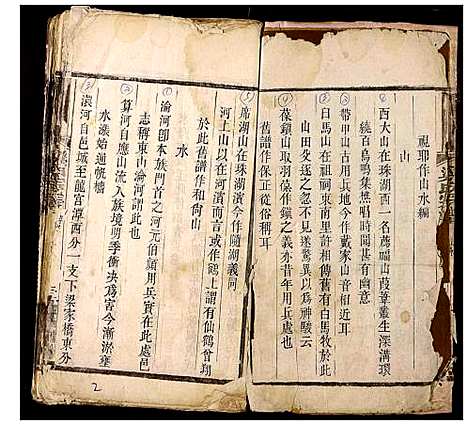 視聽作山水編
山
西大山在珠湖西一名蔗𡽫山葭葦叢生深溝環
繞百鳥鳴集樵唱時聞甚有幽意
帶甲山古用兵地今作戴家山音相近耳
白馬山在祖祠東南里許相傳舊有白馬牧於此
山田叉逐之忽不見遂驚異以為神駿云
葆鎮山取羽葆作鎮之義亦昔年用兵處也
舊譜作保正從俗稱耳
席湖山在珠湖濱今作隨湖義同
河上山以在河濱而言或作鶴上謂有仙鶴曾翔
於此舊譜作和尚山
水
淪河卽本族門首之河元伯顏用兵實在此處邑
志稱東古淪河謂此也
算河自應山流入族境明季衝決為害今漸淤壅
水漾始通帆檣
澴河自邑城至龍宮潭西分一支下梁家橋東分
2